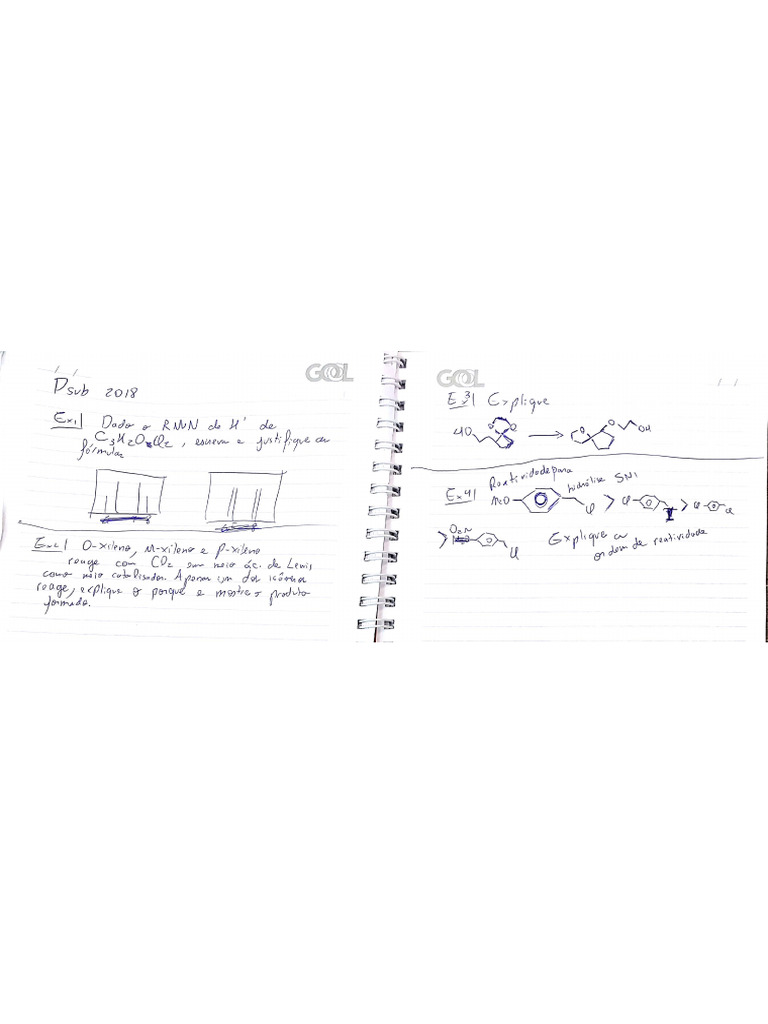 GOL
Psub 2018
Ex1 Dado o RMN de H¹ de
C3H2O2Cl2, escreva e justifique as
fórmulas
Ex2 O-xileno, M-xileno e P-xileno
reage com Cl2 em meio ác. de Lewis
como meio catalisador. Apenas um dos isômeros
reage, explique o porque e mostre o produto
formado.
GOL
Ex3 Explique
HO O O → O O OH
Ex4 Reatividade para
hidrólise SN1
MeO Cl > Cl > Cl Cl
> O2N Cl Explique a
ordem de reatividade